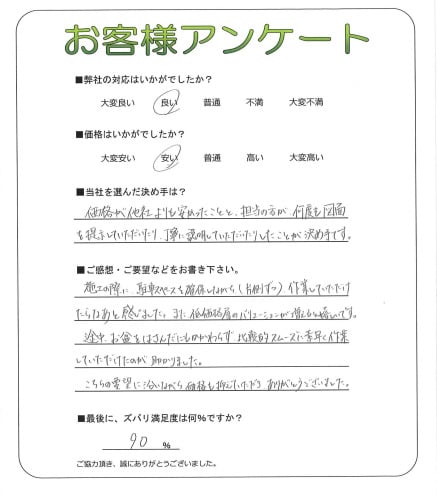 お客様アンケート
■弊社の対応はいかがでしたか？
大変良い 良い 普通 不満 大変不満
■価格はいかがでしたか？
大変安い 安い 普通 高い 大変高い
■当社を選んだ決め手は？
価格が他社よりも安かったことと、担当の方が、何度も図面
を提示していただいたり、丁寧に説明していただいたりしたことが決め手です。
■ご感想・ご要望などをお書き下さい。
施工の際に、駐車スペースを確保しながら（片側ずつ）作業していただけ
たらなあと感じました。また、低価格層のバリエーションが増えると嬉しいです。
途中、お盆をはさんだにもかかわらず、比較的スムーズに、素早く作業
していただけたのが助かりました。
こちらの要望に沿いながら価格も抑えていただき ありがとうございました。
■最後に、ズバリ満足度は何%ですか？
90 %
ご協力頂き、誠にありがとうございました。